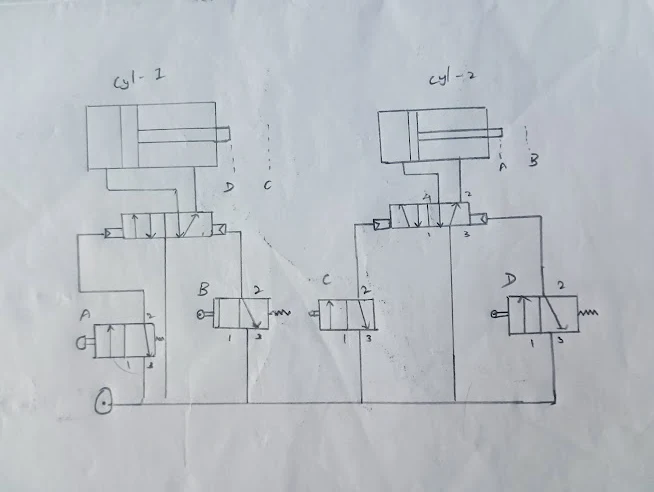 Cyl-1
Cyl-2
D
C
A
B
4
2
1
3
A
2
1
3
B
2
1
3
C
2
1
3
D
2
1
3